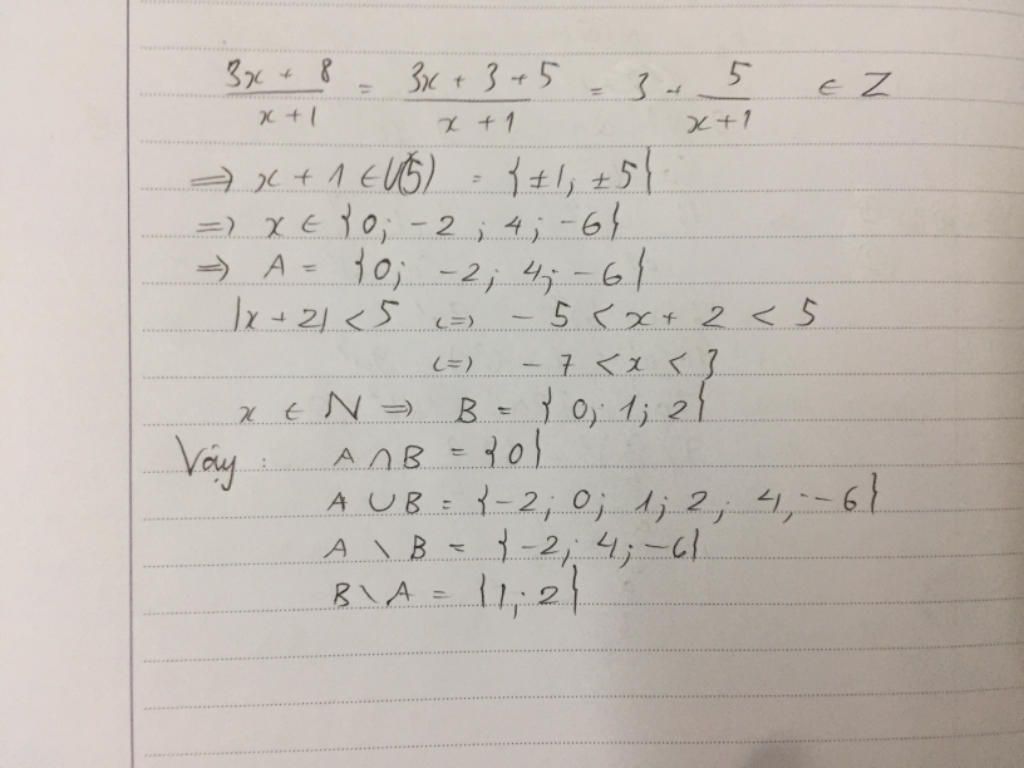 3x + 8 / x + 1 = 3x + 3 + 5 / x + 1 = 3 + 5 / x + 1 ∈ Z
=> x + 1 ∈ Ư(5) = {±1; ±5}
=> x ∈ {0; -2; 4; -6}
=> A = {0; -2; 4; -6}
|x + 2| < 5 <=> -5 < x + 2 < 5
<=> -7 < x < 3
x ∈ N => B = {0; 1; 2}
Vậy: A ∩ B = {0}
A ∪ B = {-2; 0; 1; 2; 4; -6}
A \ B = {-2; 4; -6}
B \ A = {1; 2}